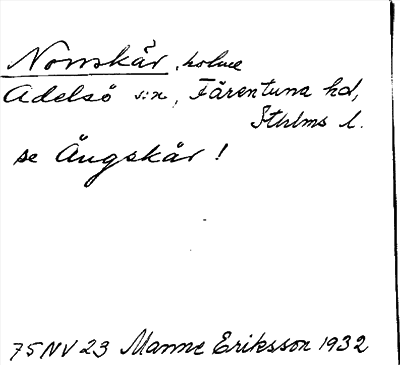 Norrskär, holme
Adelsö s:n, Färentuna hd,
Sthlms l.
se Ängskär!
75 NV 23 Manne Eriksson 1932